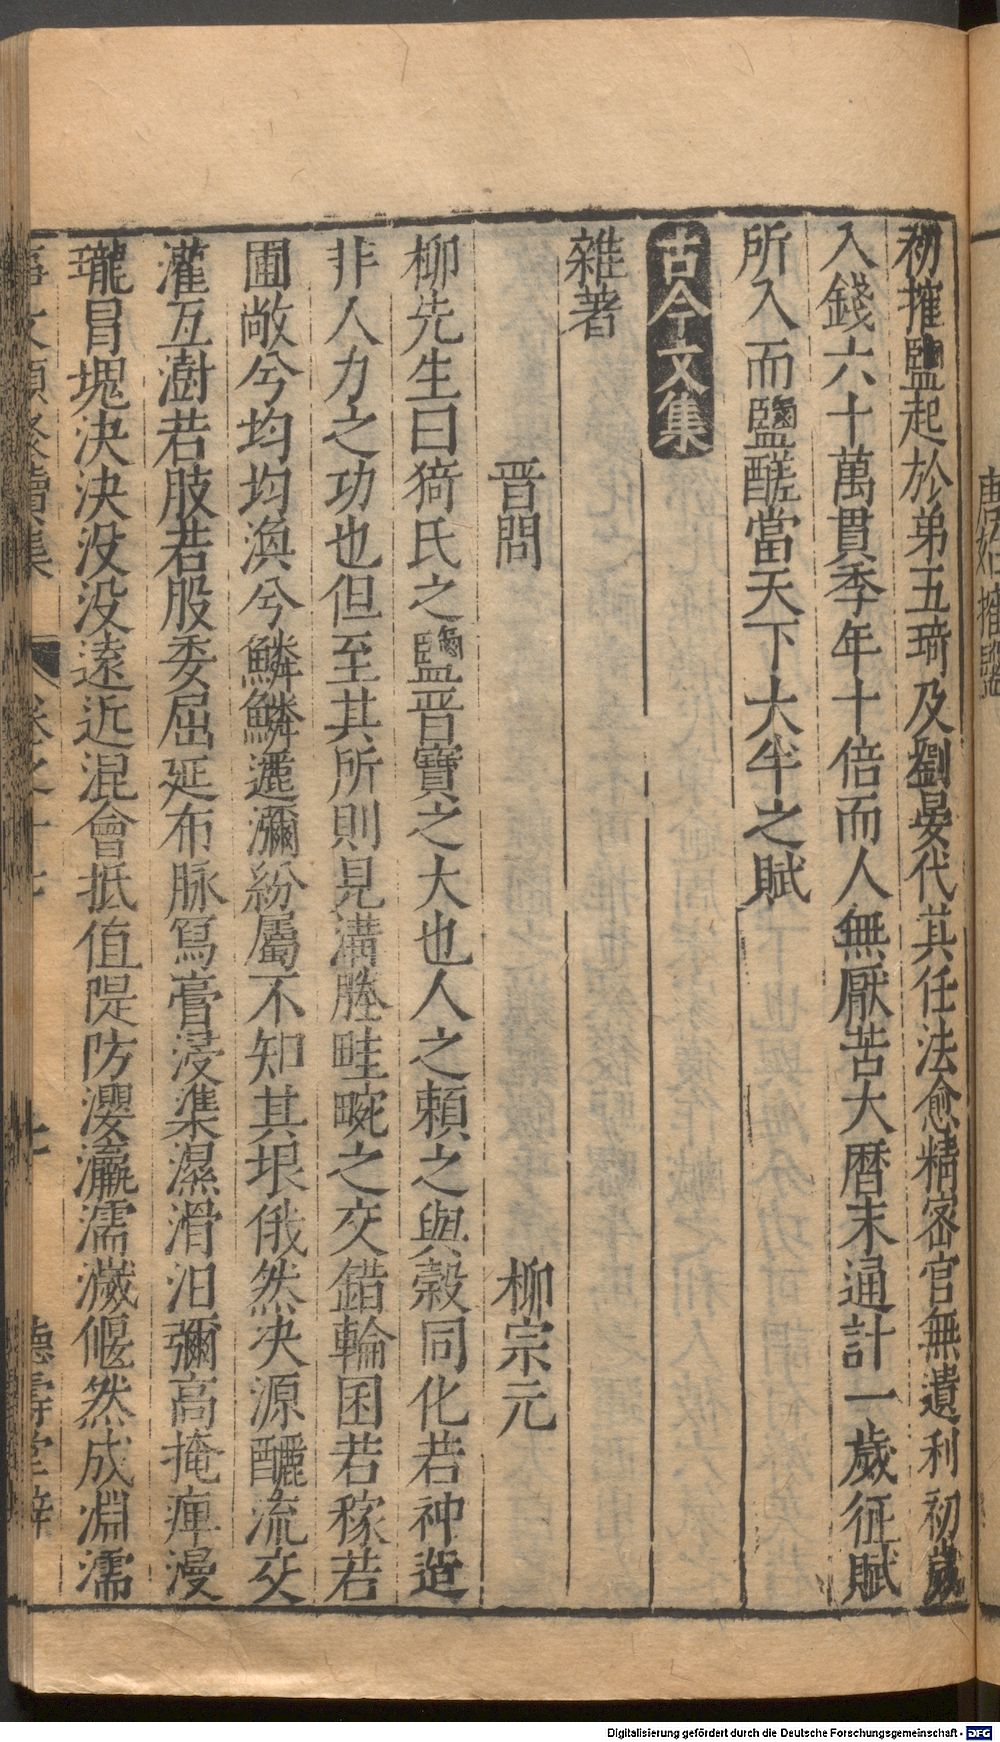 初搉鹽起於弟五琦及劉晏代其任法愈精密官無遺利初歲
入錢六十萬貫季年十倍而人無厭苦大曆末通計一歲征賦
所入而鹽醝當天下大半之賦
古今文集
雜著
晋問 柳宗元
柳先生曰猗氏之鹽晋寶之大也人之賴之與穀同化若神造
非人力之功也但至其所則見溝塍畦畹之交錯輪囷若稼若
圃敞兮均均渙兮鱗鱗邐瀰紛屬不知其垠俄然决源釃流交
灌互澍若肢若股委屈延布脉寫膏浸潗濕滑汩彌高掩庳漫
壠冒塊決決没没遠近混會抵值隄防瀴瀛濡濊偃然成淵濡
事文類聚續集 卷之十七 七 德壽堂梓
唐始搉鹽
Digitalisierung gefördert durch die Deutsche Forschungsgemeinschaft - DFG